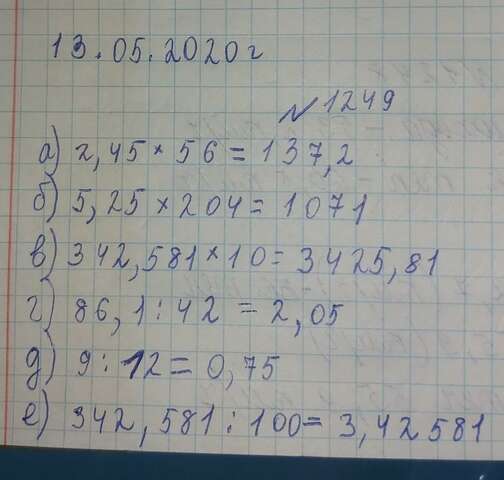 13.05.2020г
№1249
а) 2,45 × 56 = 137,2
б) 5,25 × 204 = 1071
в) 342,581 × 10 = 3425,81
г) 86,1 : 42 = 2,05
д) 9 : 12 = 0,75
е) 342,581 : 100 = 3,42581